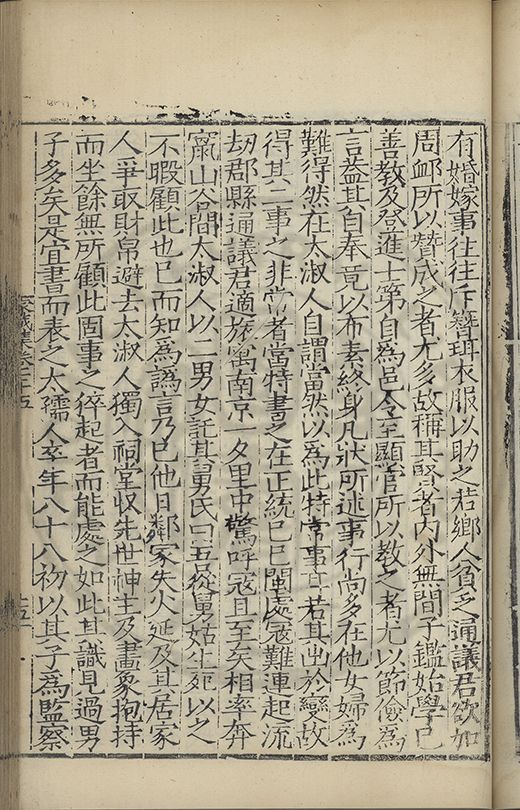 有婚嫁事往往斥簪珥衣服以助之若鄉人貧乏通議君欲加
周䘏所以賛成之者尤多故稱其賢者内外無間子鑑始學已
善教及登進士第自爲邑令至顯官所以教之者尤以節儉爲
言葢其自奉竟以布素終身凡狀所述事行尚多在他女婦爲
難得然在太淑人自謂當然以爲此特常事耳若其出於變故
得其二事之非常者當特書之在正統己巳閩處冦難連起流
刼郡縣通議君適旅寓南京一夕里中驚呼冦且至矣相率奔
竄山谷間太淑人以二男女託其舅氏曰吾從舅姑生死以之
不暇顧此也已而知爲譌言乃已他日鄰家失火延及其居家
人爭取財帛避去太淑人獨入祠堂收先世神主及畫象抱持
而坐餘無所顧此固事之猝起者而能處之如此其識見過男
子多矣是宜書而表之太孺人卒年八十八初以其子爲監察